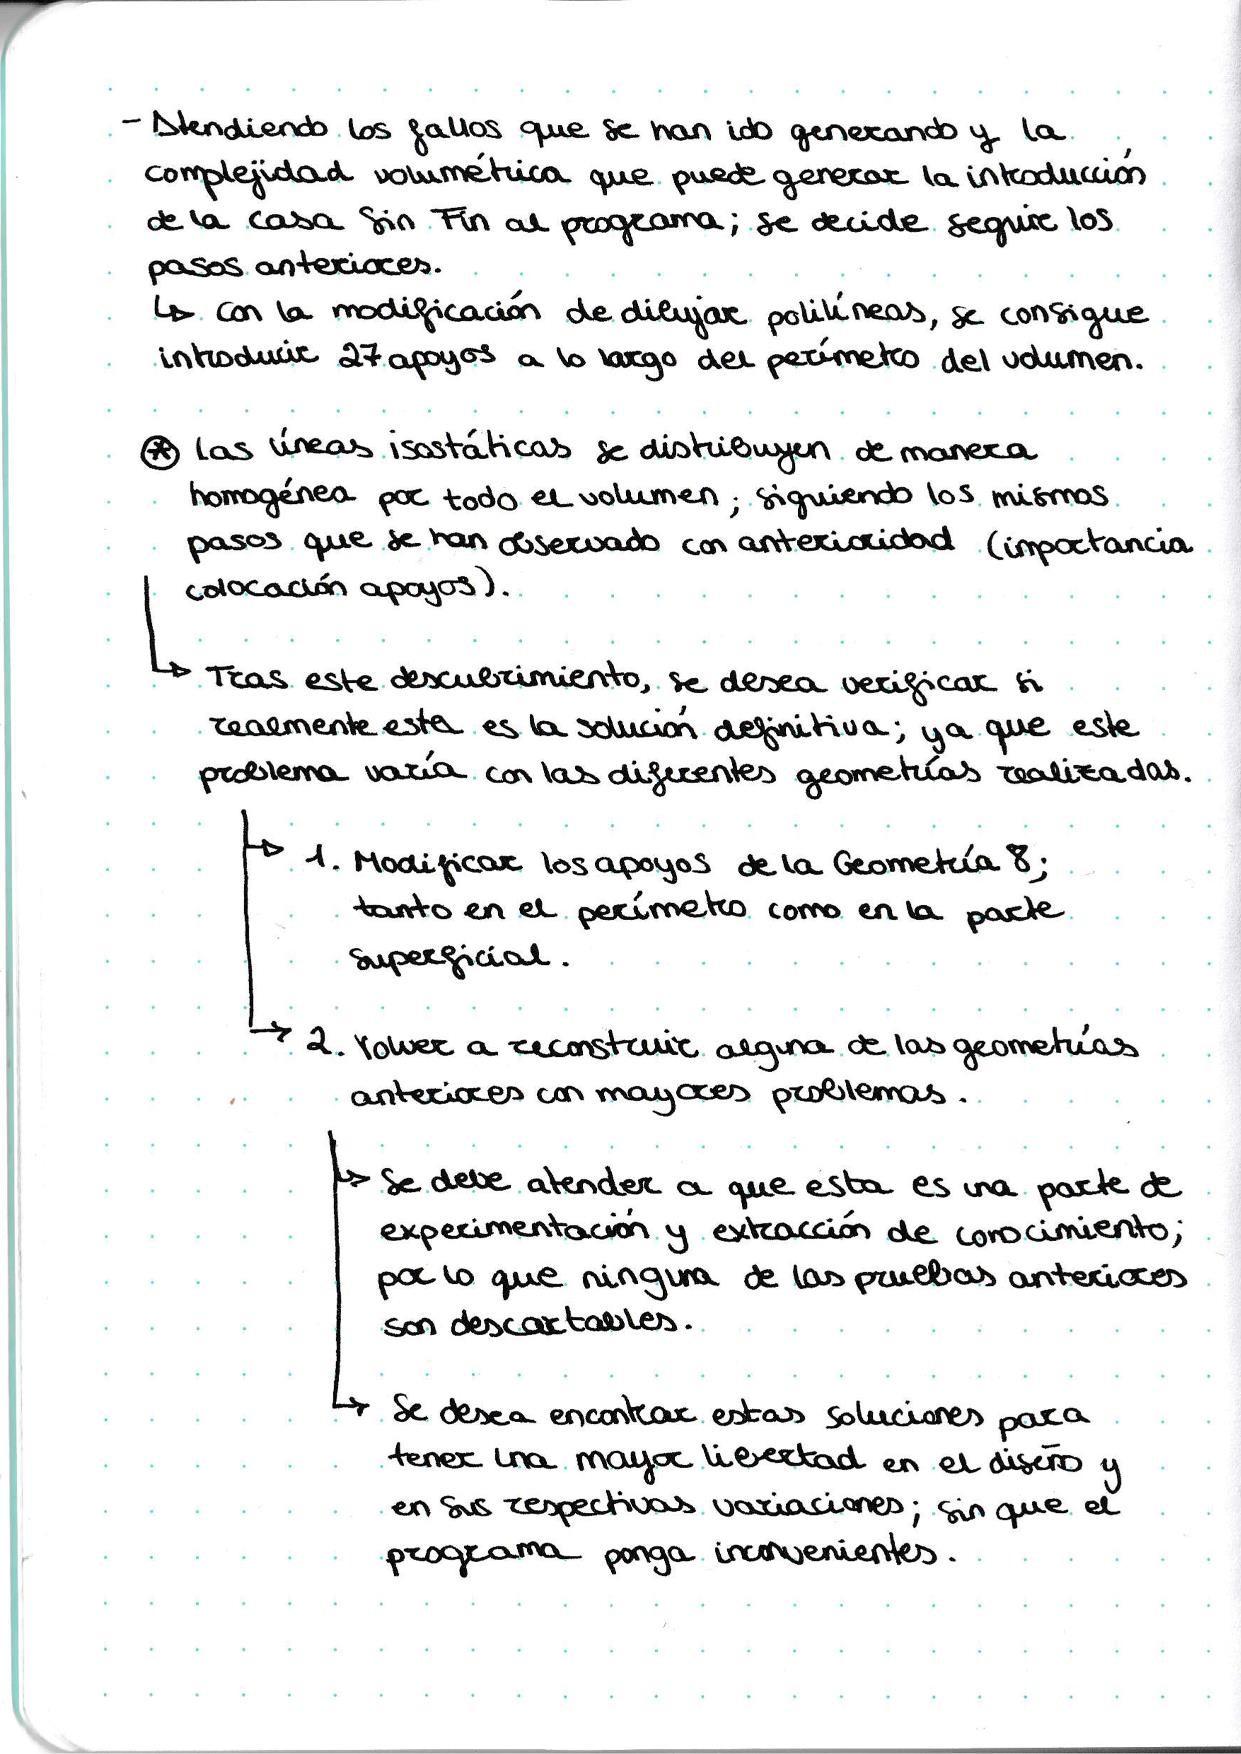 - Atendiendo los fallos que se han ido generando y la
complejidad volumétrica que puede generar la introducción
de la Casa Sin Fin al programa; se decide seguir los
pasos anteriores.
↳ Con la modificación de dibujar polilíneas, se consigue
introducir 27 apoyos a lo largo del perímetro del volumen.
⊛ Las líneas isostáticas se distribuyen de manera
homogénea por todo el volumen; siguiendo los mismos
pasos que se han observado con anterioridad (importancia
colocación apoyos).
↳ Tras este descubrimiento, se desea verificar si
realmente esta es la solución definitiva; ya que este
problema varía con las diferentes geometrías realizadas.
→ 1. Modificar los apoyos de la Geometría 8;
tanto en el perímetro como en la parte
superficial.
→ 2. Volver a reconstruir alguna de las geometrías
anteriores con mayores problemas.
↳ Se debe atender a que esta es una parte de
experimentación y extracción de conocimiento;
por lo que ninguna de las pruebas anteriores
son descartables.
↳ Se desea encontrar estas soluciones para
tener una mayor libertad en el diseño y
en sus respectivas variaciones; sin que el
programa ponga inconvenientes.